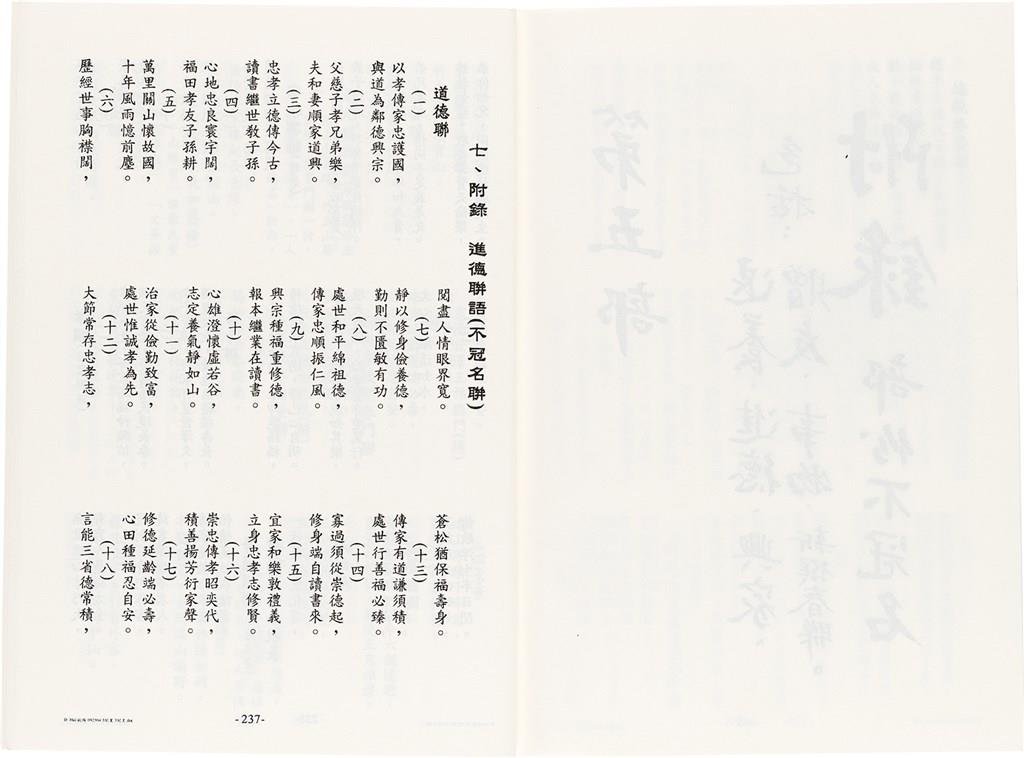 七、附錄　進德聯語(不冠名聯)
道德聯
(一)
以孝傳家忠護國，
與道為鄰德興宗。
(二)
父慈子孝兄弟樂，
夫和妻順家道興。
(三)
忠孝立德傳今古，
讀書繼世教子孫。
(四)
心地忠良寰宇闊，
福田孝友子孫耕。
(五)
萬里關山懷故國，
十年風雨憶前塵。
(六)
歷經世事胸襟闊，
閱盡人情眼界寬。
(七)
靜以修身儉養德，
勤則不匱敏有功。
(八)
處世和平綿祖德，
傳家忠順振仁風。
(九)
興宗種福重修德，
報本繼業在讀書。
(十)
心雄澄懷虛若谷，
志定養氣靜如山。
(十一)
治家從儉勤致富，
處世惟誠孝為先。
(十二)
大節常存忠孝志，
蒼松猶保福壽身。
(十三)
傳家有道謙須積，
處世行善福必臻。
(十四)
寡過須從崇德起，
修身端自讀書來。
(十五)
宜家和樂敦禮義，
立身忠孝志修賢。
(十六)
崇忠傳孝昭奕代，
積善揚芳衍家聲。
(十七)
修德延齡端必壽，
心田種福忍自安。
(十八)
言能三省德常積，
-237-